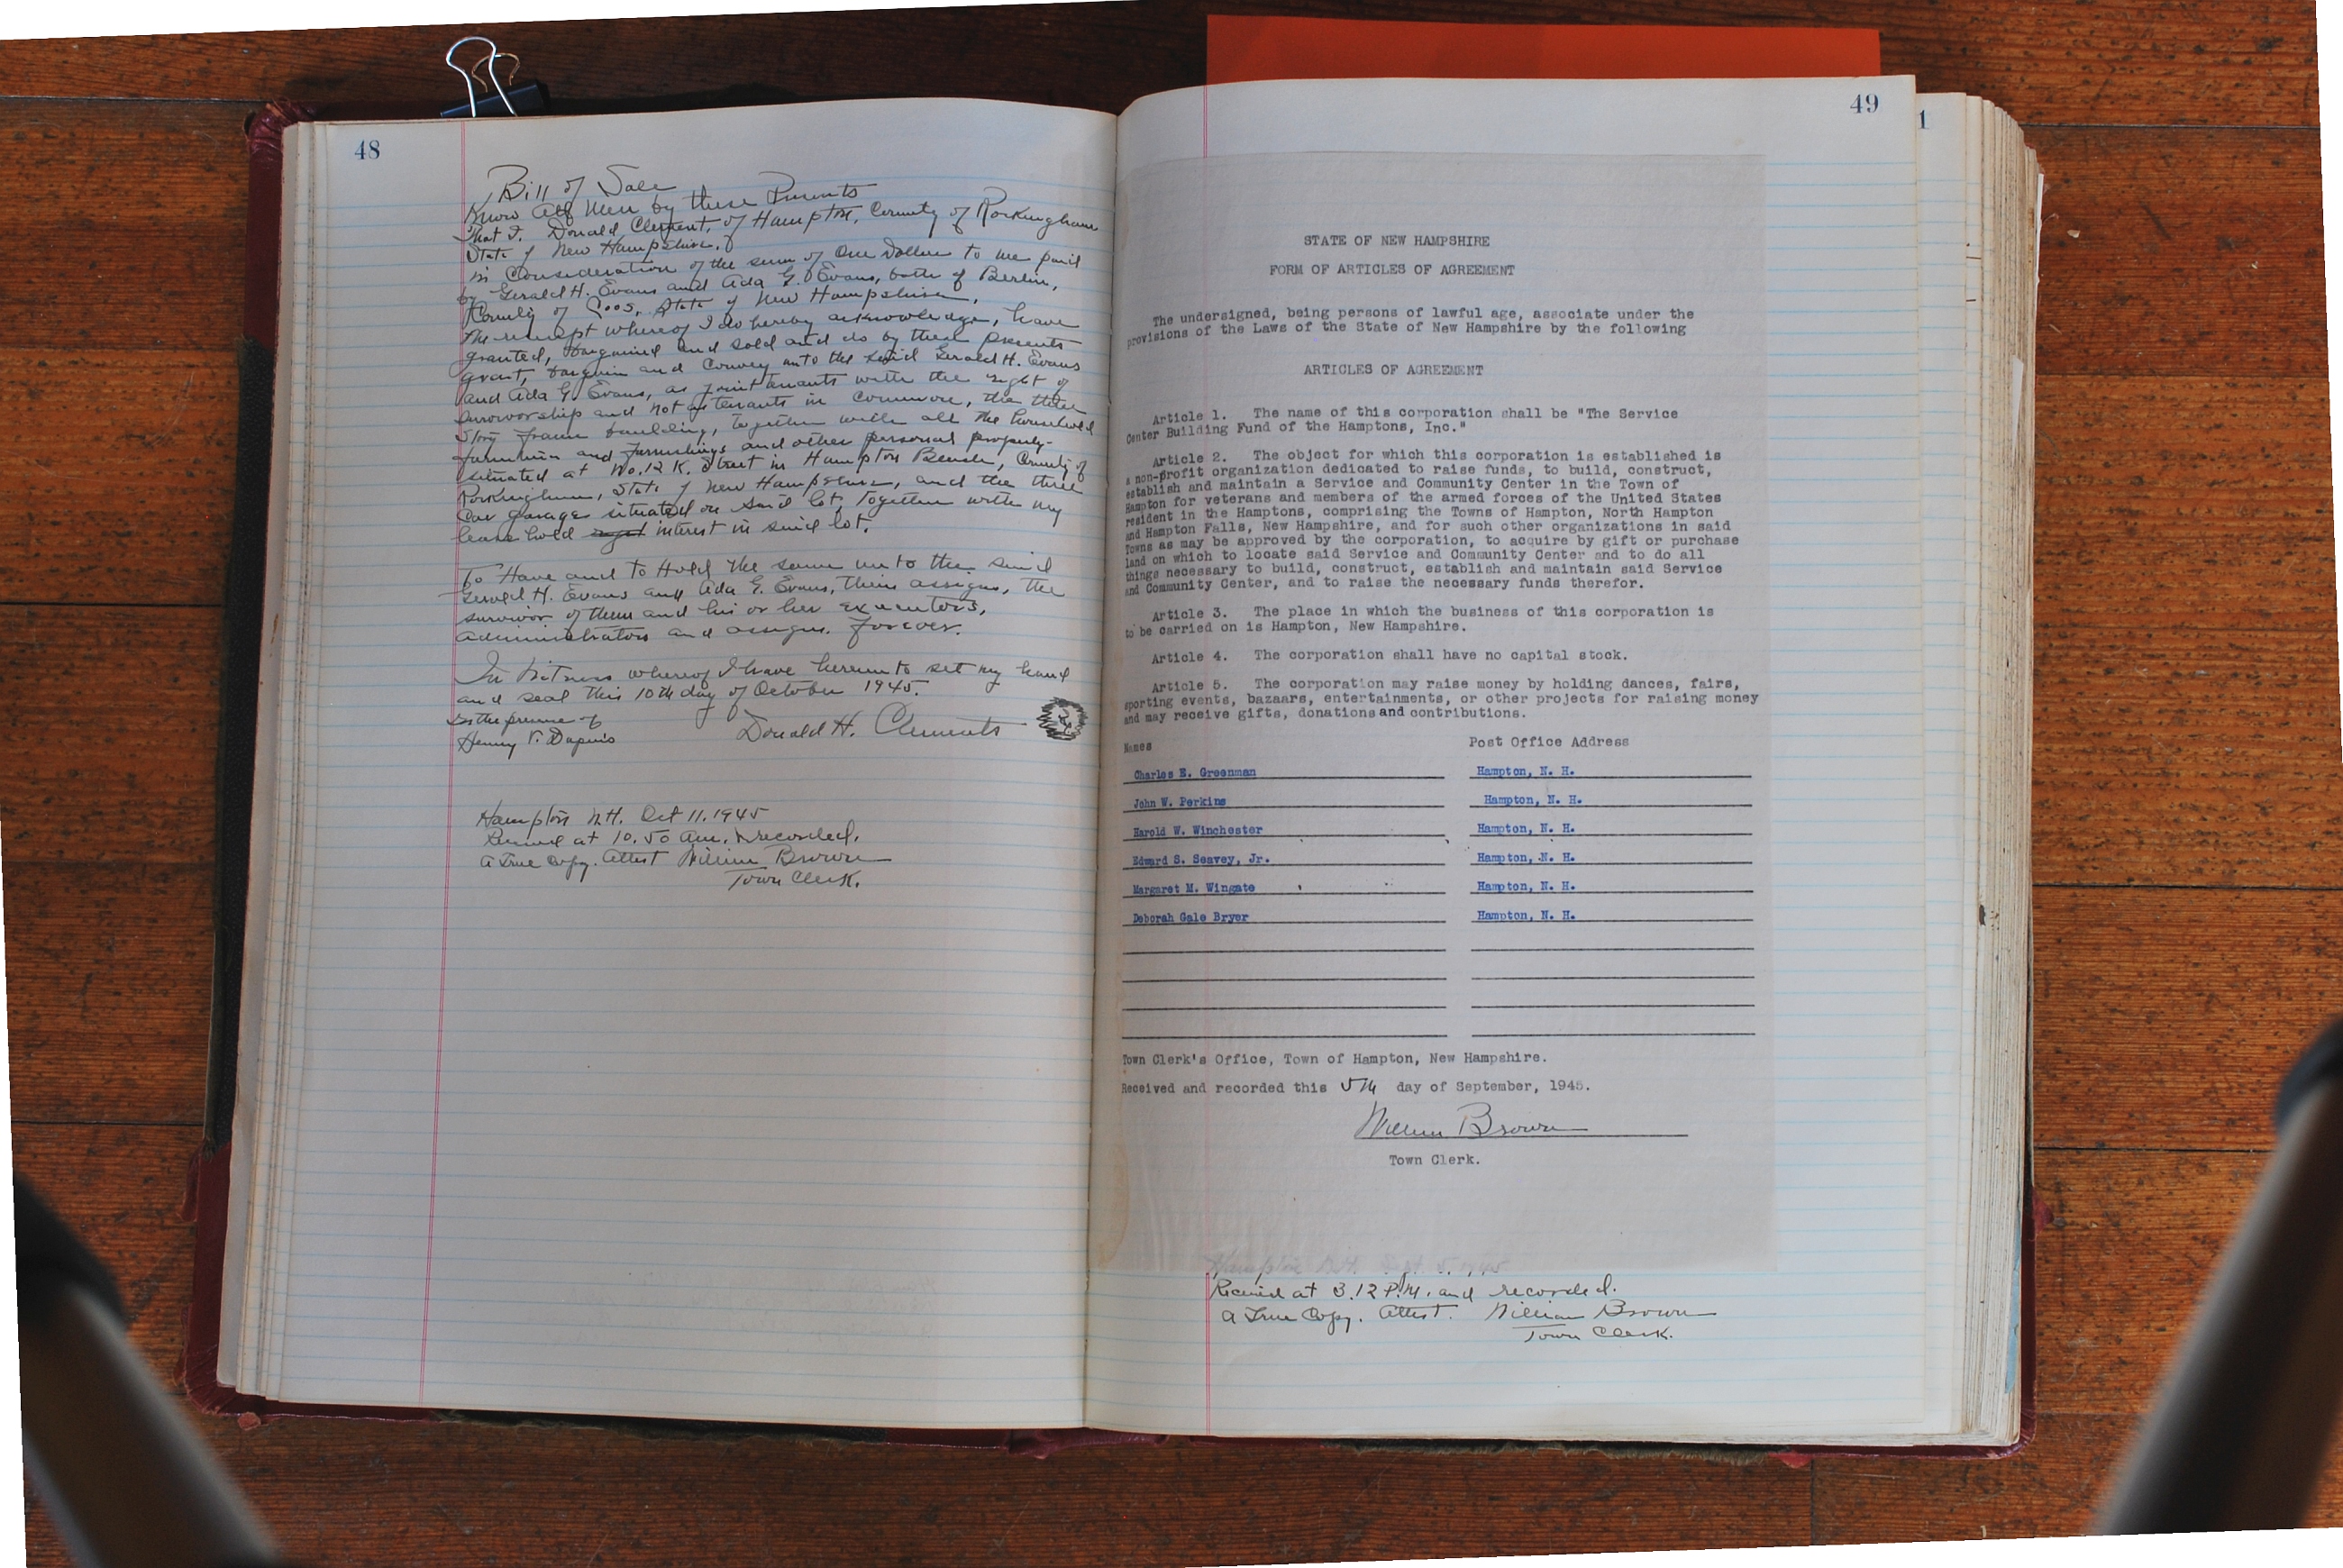 48
Bill of Sale
Know All Men by these Presents
That I, Donald Clement, of Hampton, County of Rockingham
State of New Hampshire,
in Consideration of the sum of One Dollar to me paid
by Gerald H. Evans and Ada G. Evans, both of Berlin,
County of Coos, State of New Hampshire,
the receipt whereof I do hereby acknowledge, have
granted, bargained and sold and do by these presents
grant, bargain and Convey unto the said Gerald H. Evans
and Ada G. Evans, as joint tenants with the right of
survivorship and not as tenants in common, the three
story frame building, together with all the household
furniture and furnishings and other personal property
situated at No. 12 K. Street in Hampton Beach, County of
Rockingham, State of New Hampshire, and the three
Car garage situated on said lot, together with my
lease hold interest in said lot.
To Have and to Hold the same unto the said
Gerald H. Evans and Ada G. Evans, their assigns, the
survivor of them and his or her executors,
administrators and assigns. forever.
In Witness whereof I have hereunto set my hand
and seal this 10th day of October 1945.
In the presence of
Donald H. Clements
Henry V. Dupuis
Hampton N.H. Oct 11, 1945
Received at 10.50 Am. & recorded.
A True Copy. Attest William Brown
Town Clerk.
49
1
STATE OF NEW HAMPSHIRE
FORM OF ARTICLES OF AGREEMENT
The undersigned, being persons of lawful age, associate under the
provisions of the Laws of the State of New Hampshire by the following
ARTICLES OF AGREEMENT
Article 1. The name of this corporation shall be "The Service
Center Building Fund of the Hamptons, Inc."
Article 2. The object for which this corporation is established is
a non-profit organization dedicated to raise funds, to build, construct,
establish and maintain a Service and Community Center in the Town of
Hampton for veterans and members of the armed forces of the United States
resident in the Hamptons, comprising the Towns of Hampton, North Hampton
and Hampton Falls, New Hampshire, and for such other organizations in said
Towns as may be approved by the corporation, to acquire by gift or purchase
land on which to locate said Service and Community Center and to do all
things necessary to build, construct, establish and maintain said Service
and Community Center, and to raise the necessary funds therefor.
Article 3. The place in which the business of this corporation is
to be carried on is Hampton, New Hampshire.
Article 4. The corporation shall have no capital stock.
Article 5. The corporation may raise money by holding dances, fairs,
sporting events, bazaars, entertainments, or other projects for raising money
and may receive gifts, donations and contributions.
Names Post Office Address
Charles E. Greenman Hampton, N. H.
John W. Perkins Hampton, N. H.
Harold W. Winchester Hampton, N. H.
Edward S. Seavey, Jr. Hampton, N. H.
Margaret M. Wingate Hampton, N. H.
Deborah Gale Bryer Hampton, N. H.
Town Clerk's Office, Town of Hampton, New Hampshire.
Received and recorded this 5th day of September, 1945.
William Brown
Town Clerk.
Hampton N.H. Sept. 5, 1945
Received at 3.12 P.M. and recorded.
A True Copy. Attest. William Brown
Town Clerk.